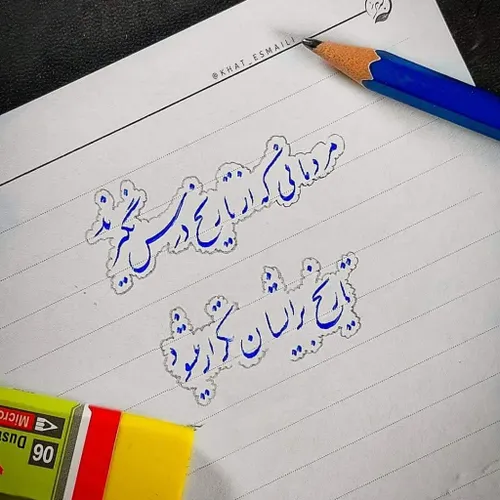 @KHAT_ESMAILI
مردمانی که از تاریخ درس نگیرند
تاریخ برایشان تکرار میشود
Micro
Dus
06